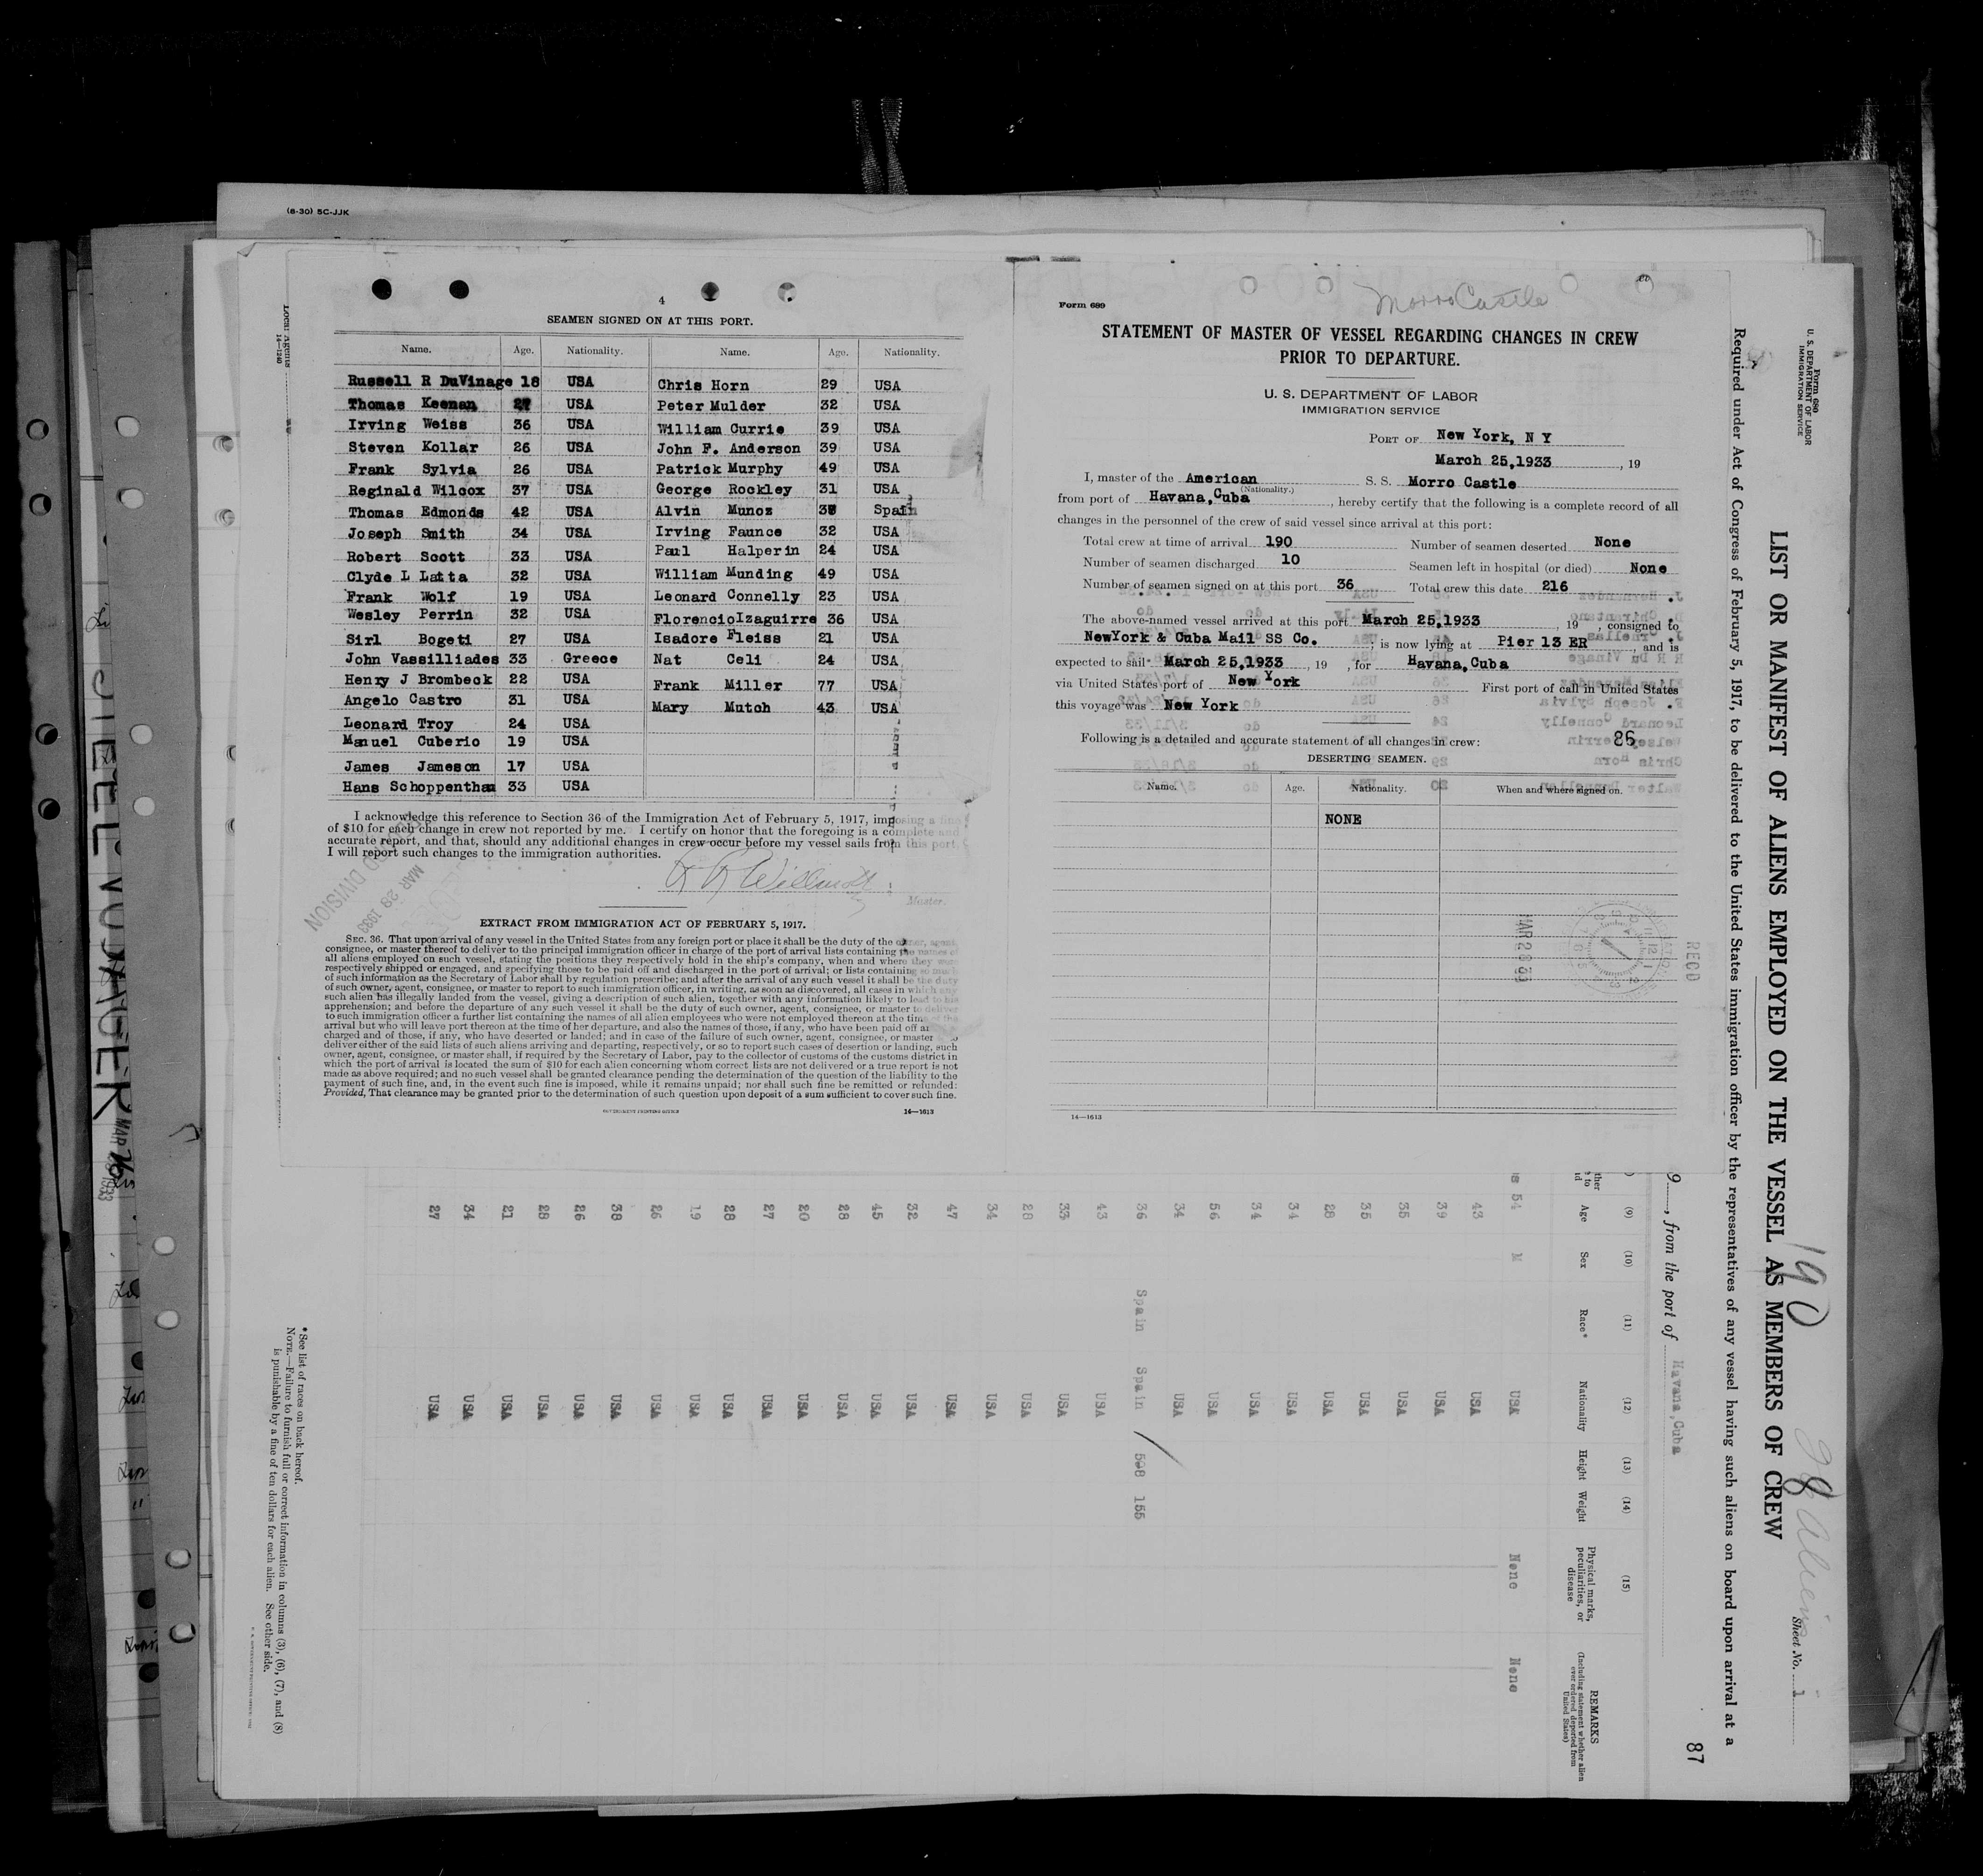 (8-30) 5C-JJK
4
SEAMEN SIGNED ON AT THIS PORT.
Name. Age. Nationality. Name. Age. Nationality.
Russell R DuVinage 18 USA Chris Horn 29 USA
Thomas Keenan 27 USA Peter Mulder 32 USA
Irving Weiss 36 USA William Currie 39 USA
Steven Kollar 26 USA John F. Anderson 39 USA
Frank Sylvia 26 USA Patrick Murphy 49 USA
Reginald Wilcox 37 USA George Rockley 31 USA
Thomas Edmonds 42 USA Alvin Munoz Spain
Joseph Smith 34 USA Irving Faunce 32 USA
Robert Scott 33 USA Paul Halperin 24 USA
Clyde L Latta 32 USA William Munding 49 USA
Frank Wolf 19 USA Leonard Connelly 23 USA
Wesley Perrin 32 USA Florencio Izaguirre 36 USA
Sirl Bogeti 27 USA Isadore Fleiss 21 USA
John Vassilliades 33 Greece Nat Celi 24 USA
Henry J Brombeck 22 USA Frank Miller 77 USA
Angelo Castro 31 USA Mary Mutch 43 USA
Leonard Troy 24 USA
Manuel Cuberio 19 USA
James Jameson 17 USA
Hans Schoppenthau 33 USA
I acknowledge this reference to Section 36 of the Immigration Act of February 5, 1917, imposing a fine
of $10 for each change in crew not reported by me. I certify on honor that the foregoing is a complete and
accurate report, and that, should any additional changes in crew occur before my vessel sails from this port,
I will report such changes to the immigration authorities.
Master.
DIVISION
MAR 29 1933
EXTRACT FROM IMMIGRATION ACT OF FEBRUARY 5, 1917.
SEC. 36. That upon arrival of any vessel in the United States from any foreign port or place it shall be the duty of the owner, agent,
consignee, or master thereof to deliver to the principal immigration officer in charge of the port of arrival lists containing the names of
all aliens employed on such vessel, stating the positions they respectively hold in the ship's company, when and where they were
respectively shipped or engaged, and specifying those to be paid off and discharged in the port of arrival; or lists containing so much
of such information as the Secretary of Labor shall by regulation prescribe; and after the arrival of any such vessel it shall be the duty
of such owner, agent, consignee, or master to report to such immigration officer, in writing, as soon as discovered, all cases in which any
such alien has illegally landed from the vessel, giving a description of such alien, together with any information likely to lead to his
apprehension; and before the departure of any such vessel it shall be the duty of such owner, agent, consignee, or master to deliver
to such immigration officer a further list containing the names of all alien employees who were not employed thereon at the time of the
arrival but who will leave port thereon at the time of her departure, and also the names of those, if any, who have been paid off and
charged and of those, if any, who have deserted or landed; and in case of the failure of such owner, agent, consignee, or master
deliver either of the said lists of such aliens arriving and departing, respectively, or so to report such cases of desertion or landing, such
owner, agent, consignee, or master shall, if required by the Secretary of Labor, pay to the collector of customs of the customs district in
which the port of arrival is located the sum of $10 for each alien concerning whom correct lists are not delivered or a true report is not
made as above required; and no such vessel shall be granted clearance pending the determination of the question of the liability to the
payment of such fine, and, in the event such fine is imposed, while it remains unpaid; nor shall such fine be remitted or refunded:
Provided, That clearance may be granted prior to the determination of such question upon deposit of a sum sufficient to cover such fine.
GOVERNMENT PRINTING OFFICE 14—1613
Form 689
Morro Castle
STATEMENT OF MASTER OF VESSEL REGARDING CHANGES IN CREW
PRIOR TO DEPARTURE.
U. S. DEPARTMENT OF LABOR
IMMIGRATION SERVICE
PORT OF New York, N Y
March 25,1933, 19
I, master of the American S. S. Morro Castle
(Nationality.)
from port of Havana, Cuba, hereby certify that the following is a complete record of all
changes in the personnel of the crew of said vessel since arrival at this port:
Total crew at time of arrival 190 Number of seamen deserted None
Number of seamen discharged 10 Seamen left in hospital (or died) None
Number of seamen signed on at this port 36 Total crew this date 216
The above-named vessel arrived at this port March 25,1933, 19 , consigned to
NewYork & Cuba Mail SS Co., is now lying at Pier 13 ER, and is
expected to sail March 25,1933, 19 , for Havana, Cuba
via United States port of New York First port of call in United States
this voyage was New York.
Following is a detailed and accurate statement of all changes in crew: 86
DESERTING SEAMEN.
Name. Age. Nationality. When and where signed on.
NONE
14—1613
REC'D
Form 680
U. S. DEPARTMENT OF LABOR
IMMIGRATION SERVICE
LIST OR MANIFEST OF ALIENS EMPLOYED ON THE VESSEL AS MEMBERS OF CREW
190
Sheet No. 1
Required under Act of Congress of February 5, 1917, to be delivered to the United States immigration officer by the representatives of any vessel having such aliens on board upon arrival at a
9, from the port of Havana, Cuba
87
(9) (10) (11) (12) (13) (14) (15)
Age Sex Race* Nationality Height Weight Physical marks, peculiarities, or disease REMARKS
(Including statement whether alien ever ordered deported from United States)
54 M USA None None
43 USA
39 USA
35 USA
35 USA
28 USA
34 USA
34 USA
56 USA
34 USA
36 Spain Spain 508 155
43 USA
33 USA
28 USA
34 USA
47 USA
32 USA
45 USA
28 USA
20 USA
27 USA
28 USA
19 USA
26 USA
38 USA
26 USA
28 USA
21 USA
34 USA
27 USA
*See list of races on back hereof.
NOTE.—Failure to furnish full or correct information in columns (3), (6), (7), and (8)
is punishable by a fine of ten dollars for each alien. See other side.
Local Agents
14—1240
STEEL VOYAGER